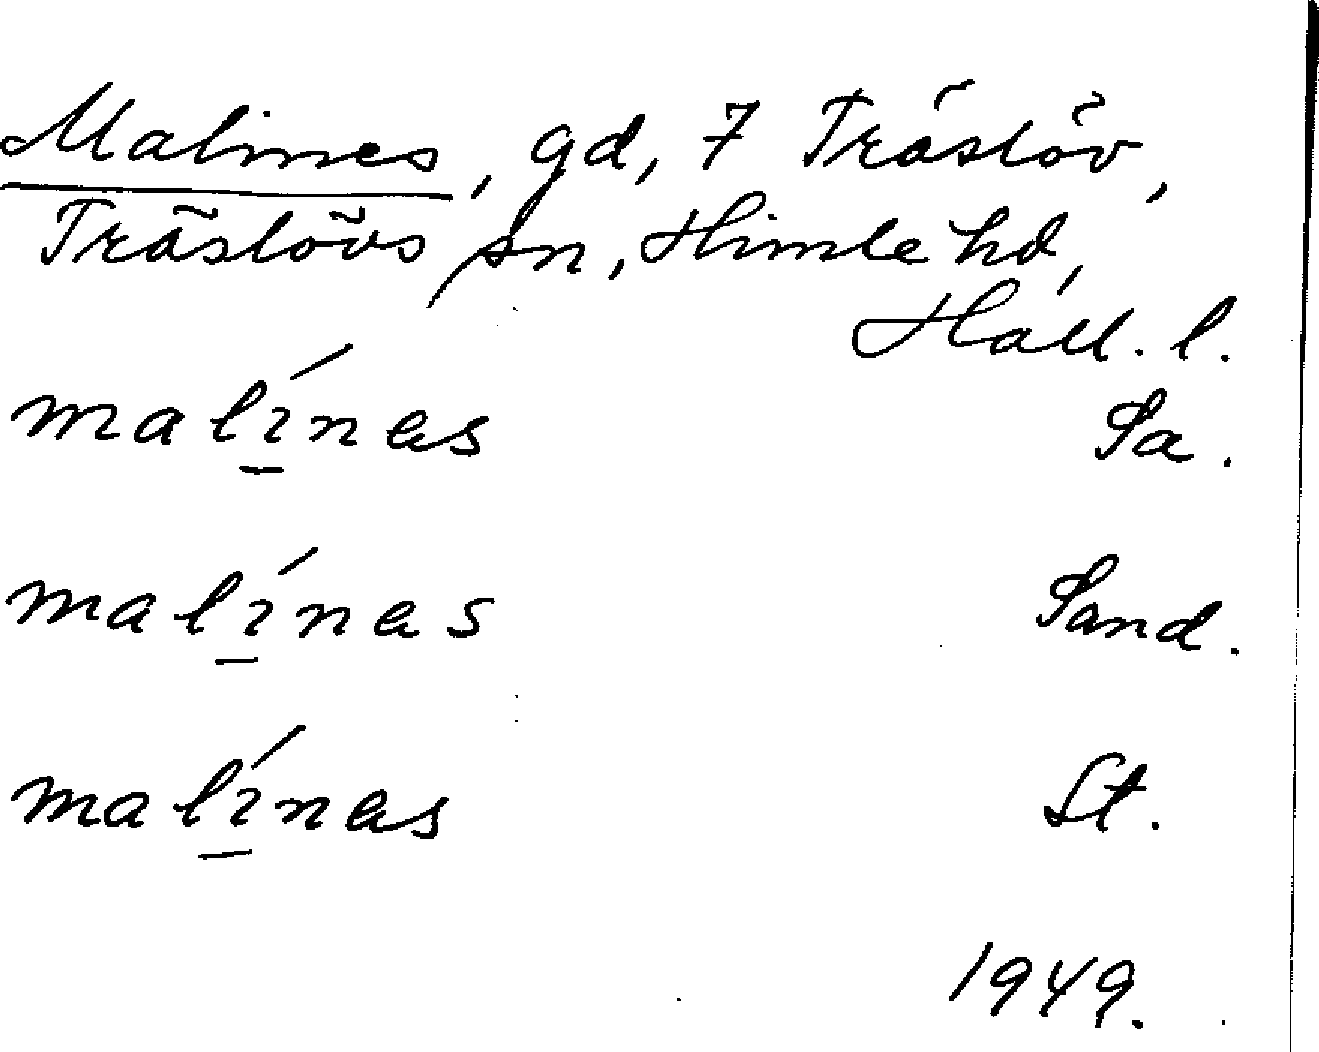 Malines, gd, 7 Träslöv,
Träslövs sn, Himle hd,
Hall. l.
malı̱́nas Sa.
malı̱́nas Sand.
malı̱́nas St.
1949.